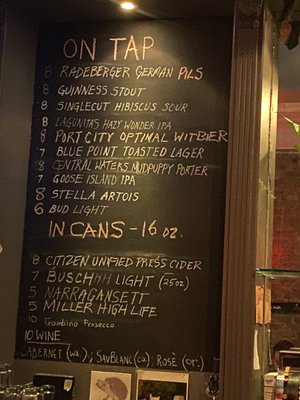 ON TAP
8 RADEBERGER GERMAN PILS
8 GUINNESS STOUT
8 SINGLECUT HIBISCUS SOUR
8 LAGUNITAS HAZY WONDER IPA
8 PORT CITY OPTIMAL WIT BIER
7 BLUE POINT TOASTED LAGER
8 CENTRAL WATERS MUDPUPPY PORTER
7 GOOSE ISLAND IPA
8 STELLA ARTOIS
6 BUD LIGHT
IN CANS - 16 oz.
8 CITIZEN UNIFIED PRESS CIDER
7 BUSCHHH LIGHT (25oz)
5 NARRAGANSETT
5 MILLER HIGH LIFE
10 Gambino Prosecco
10 WINE
CABERNET (WA.); SAUV BLANC (CA); ROSÈ (OR.)